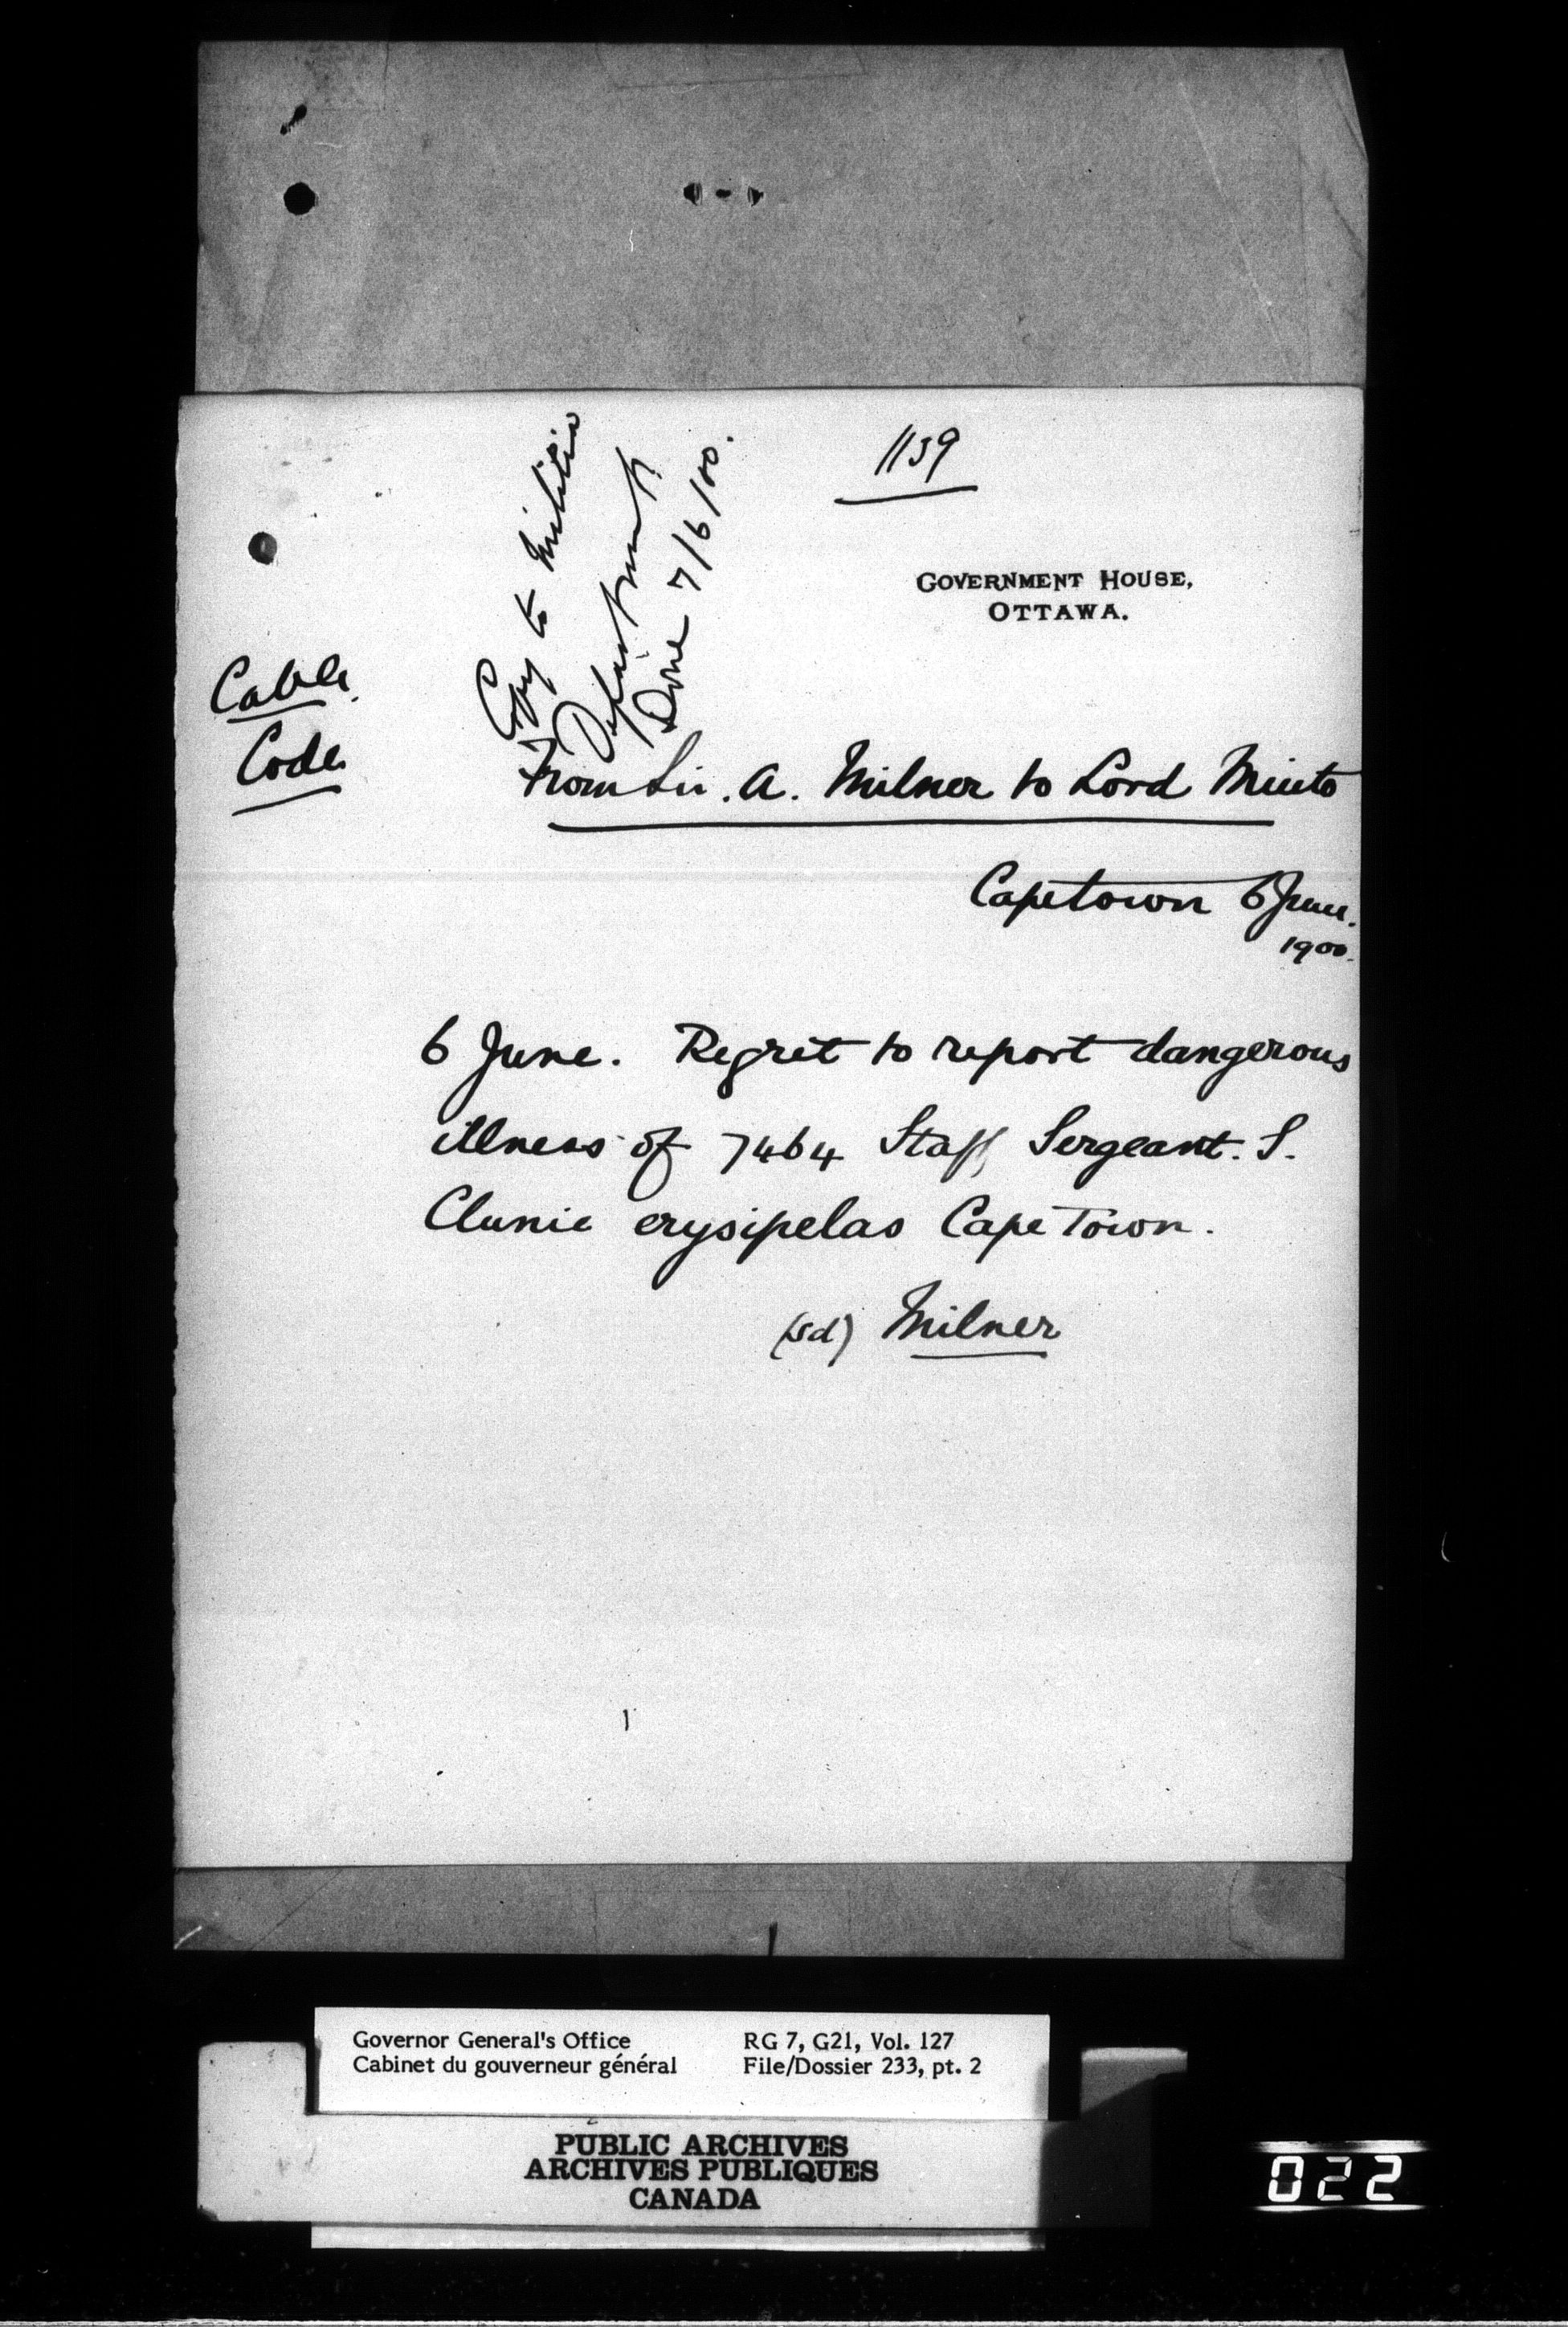 1139
Copy to Militia
Department
Done 7/6/00.
GOVERNMENT HOUSE,
OTTAWA.
Cable.
Code
From Sir. A. Milner to Lord Minto
Capetown 6 June.
1900.
6 June. Regret to report dangerous
illness of 7464 Staff Sergeant. S.
Clunie erysipelas Cape Town.
(sd) Milner
Governor General's Office RG 7, G21, Vol. 127
Cabinet du gouverneur général File/Dossier 233, pt. 2
PUBLIC ARCHIVES
ARCHIVES PUBLIQUES
CANADA
022